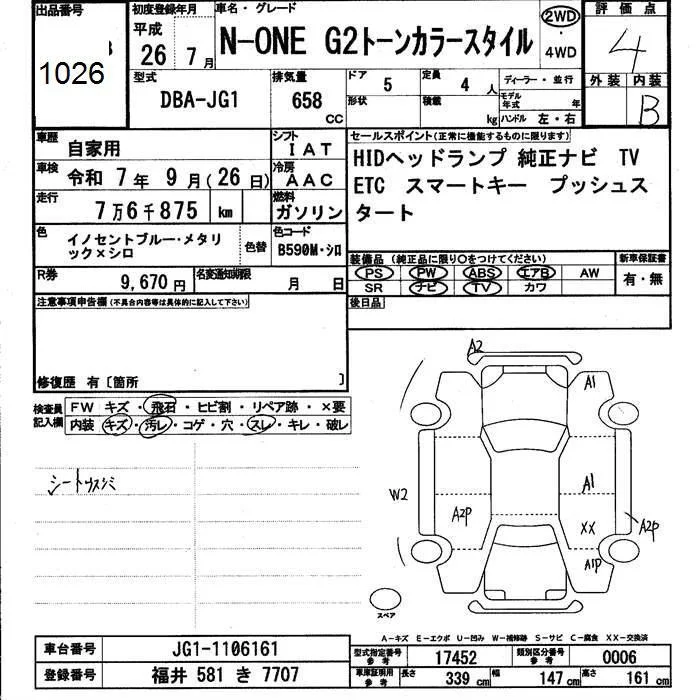 出品番号
1026
初度登録年月
平成
26 7月
車名・グレード
N-ONE G2トーンカラースタイル
2WD
・
4WD
評価点
4
外装 内装
B
型式
DBA-JG1
排気量
658
CC
ドア
5
定員
4
人
形状
積載
kg
ディーラー・並行
モデル年式
年
ハンドル 左・右
車歴
自家用
シフト
IAT
車検
令和 7年 9月(26日)
冷房
AAC
走行
7万6千875 km
燃料
ガソリン
色
イノセントブルー・メタリ
ック×シロ
色替
色コード
B590M・シロ
R券
9,670円
名変通知期限
月 日
セールスポイント(正常に機能するものに限ります)
HIDヘッドランプ 純正ナビ TV
ETC スマートキー プッシュス
タート
装備品(純正品に限り○をつけてください)
PS PW ABS エアB AW
SR ナビ TV カワ
新車保証書
有・無
後日品
注意事項申告欄(不具合内容等は具体的に記入して下さい)
修復歴 有〔箇所 〕
検査員
記入欄
FW キズ・飛石・ヒビ割・リペア跡・×要
内装 キズ・汚レ・コゲ・穴・スレ・キレ・破レ
シートウスシミ
A2
A1
W2
A2P
A1
XX
A2P
A1P
スペア
A-キズ E-エクボ U-凹み W-補修跡 S-サビ C-腐食 XX-交換済
車台番号
JG1-1106161
登録番号
福井 581 き 7707
型式指定番号
参考
17452
類別区分番号
参考
0006
車庫証明用
参考
長さ
339 cm
幅
147 cm
高さ
161 cm